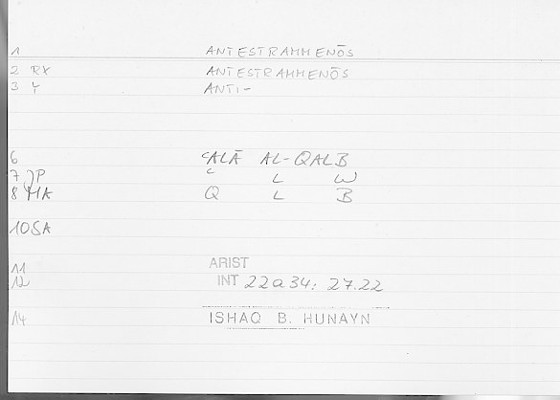 1 ANTESTRAMMENŌS
2 RX ANTESTRAMMENŌS
3 Y ANTI-
6 ʿALĀ AL-QALB
7 JP ʿ L W
8 MA Q L B
10 SA
11 ARIST
12 INT 22a34; 27.22
14 ISHAQ B. HUNAYN